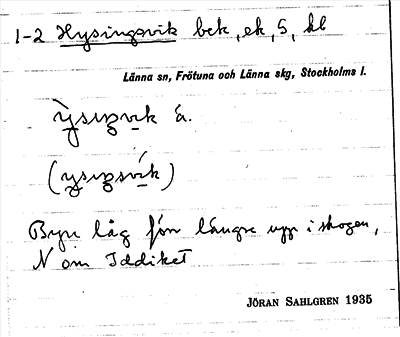 1-2 Hysingsvik bek, ek, 5, kl
Länna sn, Frötuna och Länna skg, Stockholms l.
Byn låg förr längre upp i skogen,
N om Iddiket
JÖRAN SAHLGREN 1935